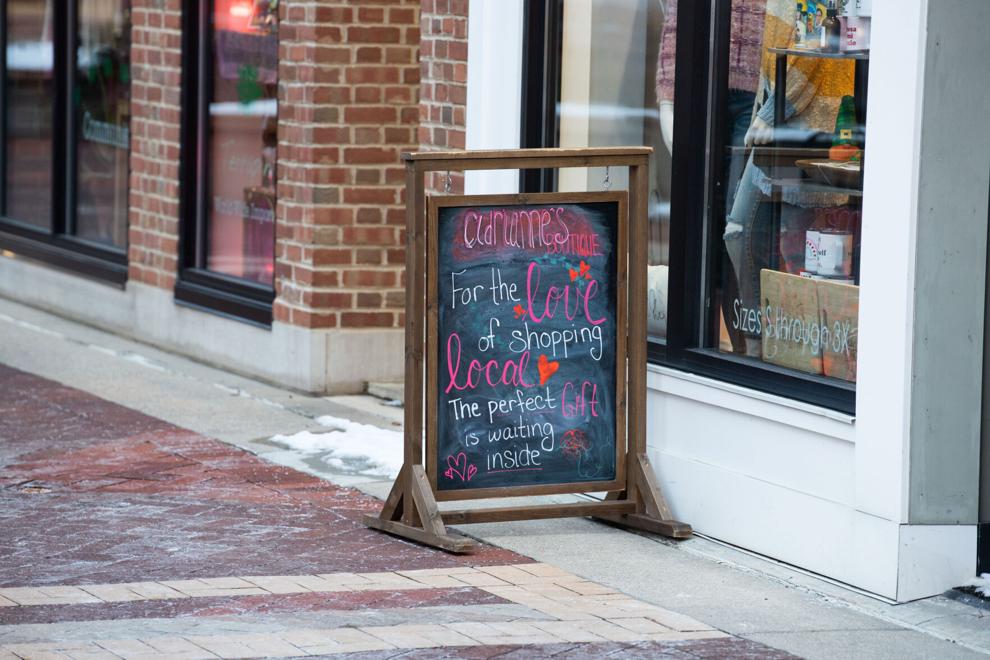 Adrianne's
BOUTIQUE
For the love
of shopping
local
The perfect Gift
is waiting
inside
Sizes S through 3X